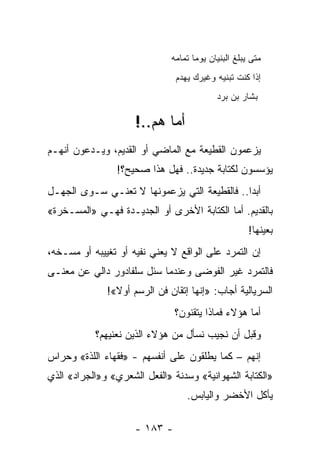 متى يبلغ البنيان يوما تمامه
إذا كنت تبنيه وغيرك يهدم
بشار بن برد
أما هم..!
يزعمون القطيعة مع الماضي أو القديم، ويـدعون أنهـم
يؤسسون لكتابة جديدة.. فهل هذا صحيح؟!
أبدا.. فالقطيعة التي يزعمونها لا تعنـي سـوى الجهـل
بالقديم. أما الكتابة الأخرى أو الجديـدة فهـي «المسـخرة»
بعينها!
إن التمرد على الواقع لا يعني نفيه أو تغييبه أو مسـخه،
فالتمرد غير الفوضى وعندما سئل سلفادور دالي عن معنـى
السريالية أجاب: «إنها إتقان فن الرسم أولا»!
أما هؤلاء فماذا يتقنون؟
وقبل أن نجيب نسأل من هؤلاء الذين نعنيهم؟
إنهم – كما يطلقون على أنفسهم - «فقهاء اللذة» وحراس
«الكتابة الشهوانية» وسدنة «الفعل الشعري» و«الجراد» الذي
يأكل الأخضر واليابس.
- ١٨٣ -